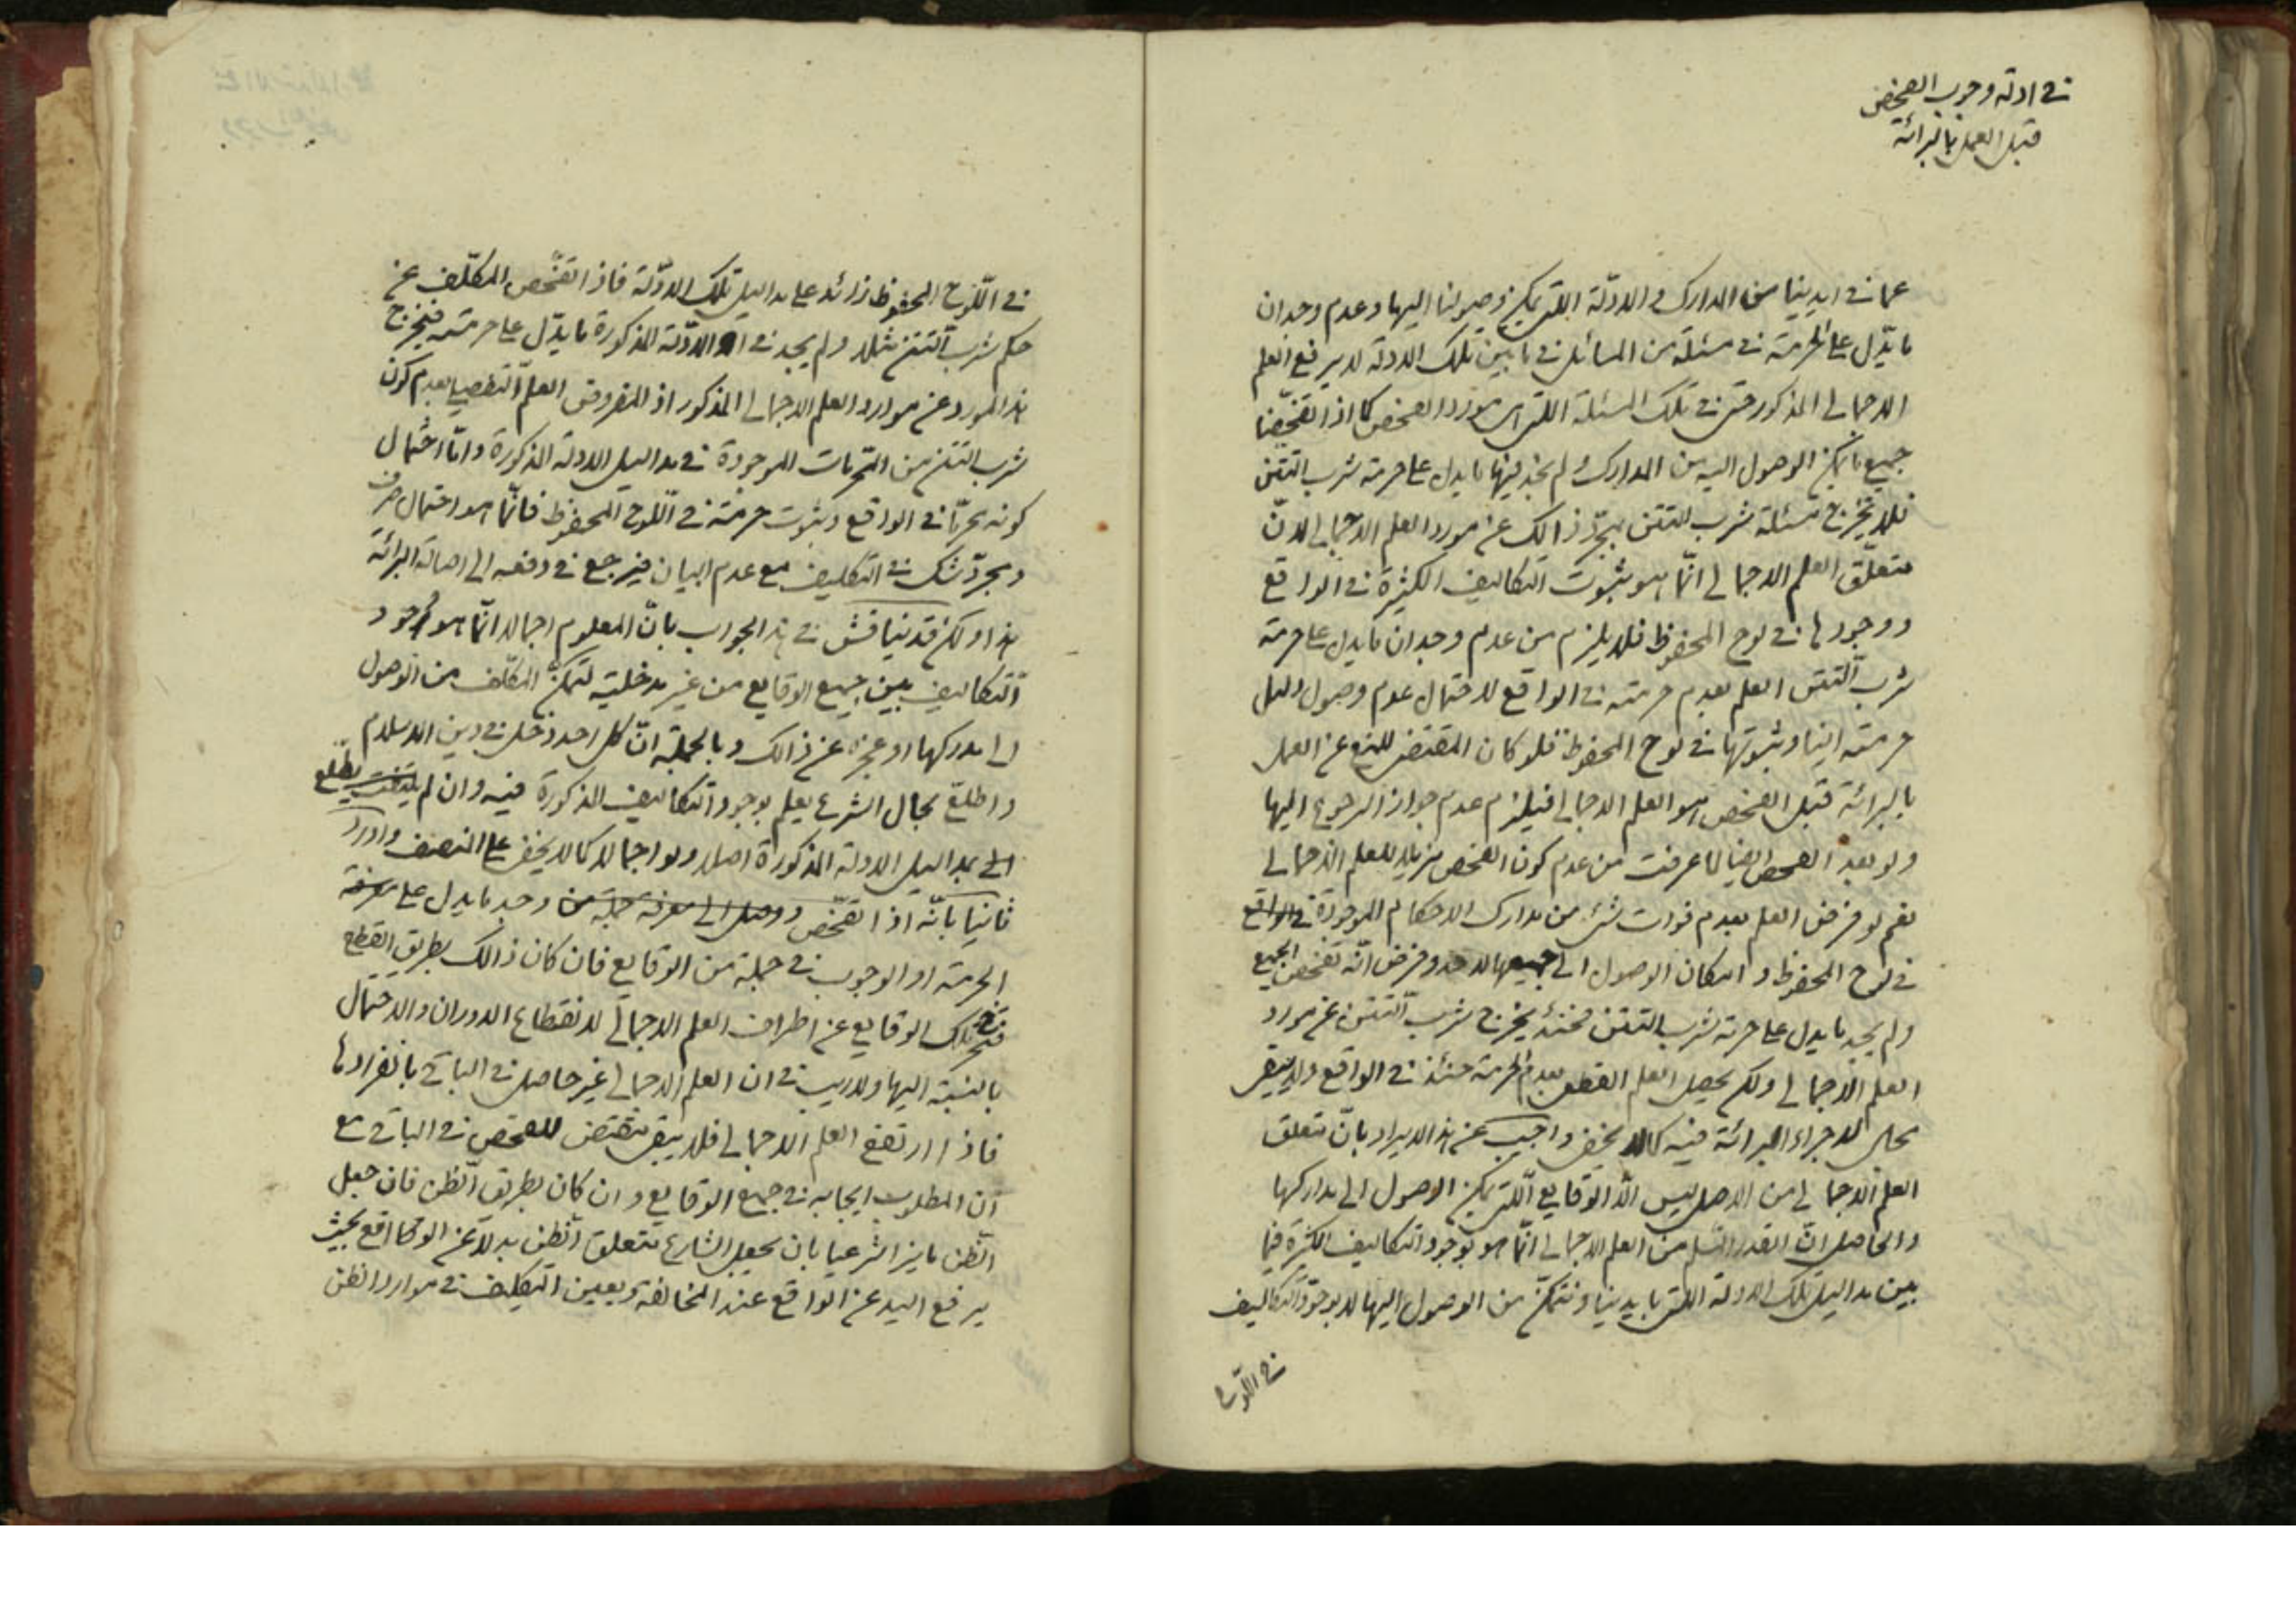 في ادلة وجوب الفحص
قبل العمل بالبرائة
عما في ايدينا من المدارك والادلّة اللتى يمكن وصولنا اليها وعدم وجدان
ما يدّل على الحرمة في مسئلة من المسائل في ما بين تلك الادلة لا يرفع العلم
الاجمالى المذكور حتى في تلك المسئلة اللتى هى مورد الفحص كما اذا تفحّصنا
جميع ما يمكن الوصول اليه من المدارك ولم نجد فيها ما يدل على حرمة شرب التتن
فلا يخرج مسئلة شرب التتن بمجرّد ذالك عن مورد العلم الاجمالى لانّ
متعلّق العلم الاجمالى انّما هو بثبوت التكاليف الكثيرة في الواقع
ووجودها في لوح المحفوظ فلا يلزم من عدم وجدان ما يدل على حرمة
شرب التتن العلم بعدم حرمته في الواقع لاحتمال عدم وصول دليل
حرمته الينا وثبوتها في لوح المحفوظ فلو كان المقتضى للمنع عن العمل
بالبرائة قبل الفحص هو العلم الاجمالى فيلزم عدم جواز الرجوع اليها
ولو بعد الفحص ايضا لما عرفت من عدم كون الفحص مزيلا للعلم الاجمالى
نعم لو فرض العلم بعدم فوات شئ من مدارك الاحكام الموجودة في الواقع
في لوح المحفوظ وامكان الوصول الى جميعها لاحد وفرض انّه تفحّص الجميع
ولم يجد ما يدل على حرمة شرب التتن فحينئذ يخرج شرب التتن عن مورد
العلم الاجمالى ولكن يحصل العلم القطعى بعدم الحرمة حينئذ في الواقع ولا يبقى
محل لاجراء البرائة فيه كما لا يخفى واجيب عن هذا الايراد بانّ متعلق
العلم الاجمالى من الاصل ليس الّا الوقايع اللتى يمكن الوصول الى مداركها
والحاصل انّ القدر المسلم من العلم الاجمالى انّما هو بوجود التكاليف الكثيرة فيما
بين مداليل تلك الادلة اللتى بايدينا ونتمكّن من الوصول اليها لا بوجود التكاليف
في اللّوح
في اللّوح المحفوظ زائدا على مداليل تلك الادلّة فاذا تفحّص المكلّف عن
حكم شرب التتن مثلا ولم يجد في الادلّة المذكورة ما يدّل على حرمته فيخرج
هذا المورد عن موارد العلم الاجمالى المذكور اذ المفروض العلم التفصيلى بعدم كون
شرب التتن من المحرمات الموجودة في مداليل الادلة المذكورة وامّا احتمال
كونه محرمّا في الواقع وثبوت حرمته في اللّوح المحفوظ فانّما هو احتمال صرف
ومجرّد شك في التكليف مع عدم البيان فيرجع في دفعه الى اصالة البرائة
هذا ولكن قد يناقش في هذا الجواب بانّ المعلوم اجمالا انّما هو وجود
التكاليف بين جميع الوقايع من غير مدخلية لتمكن المكلّف من الوصول
الى مداركها او عجزه عن ذالك وبالجملة انّ كل احد دخل في دين الاسلام
واطلع بحال الشرع يعلم بوجود التكاليف المذكورة فيه وان لم يلتفت يطّلع
الى مداليل الادلة المذكورة اصلا ولو اجمالا كما لا يخفى على المنصف واورد
ثانيا بانّه اذا تفحّص ووصل الى معرفة جملة من وجد ما يدل على معرفة
الحرمة او الوجوب في جملة من الوقايع فان كان ذالك بطريق القطع
فتخرج تلك الوقايع عن اطراف العلم الاجمالى لانقطاع الدوران والاحتمال
بالنسبة اليها ولاريب في ان العلم الاجمالى غير حاصل في الباقى بانفرادها
فاذا ارتفع العلم الاجمالى فلا يبقى مقتض للفحص في الباقى مع
ان المطلوب ايجابه في جميع الوقايع وان كان بطريق الظن فان جعل
الظن مايزا شرعيا بان يجعل الشارع متعلق الظن بدلا عن الواقع بحيث
يرفع اليد عن الواقع عند المخالفة وبعين التكليف في موارد الظن